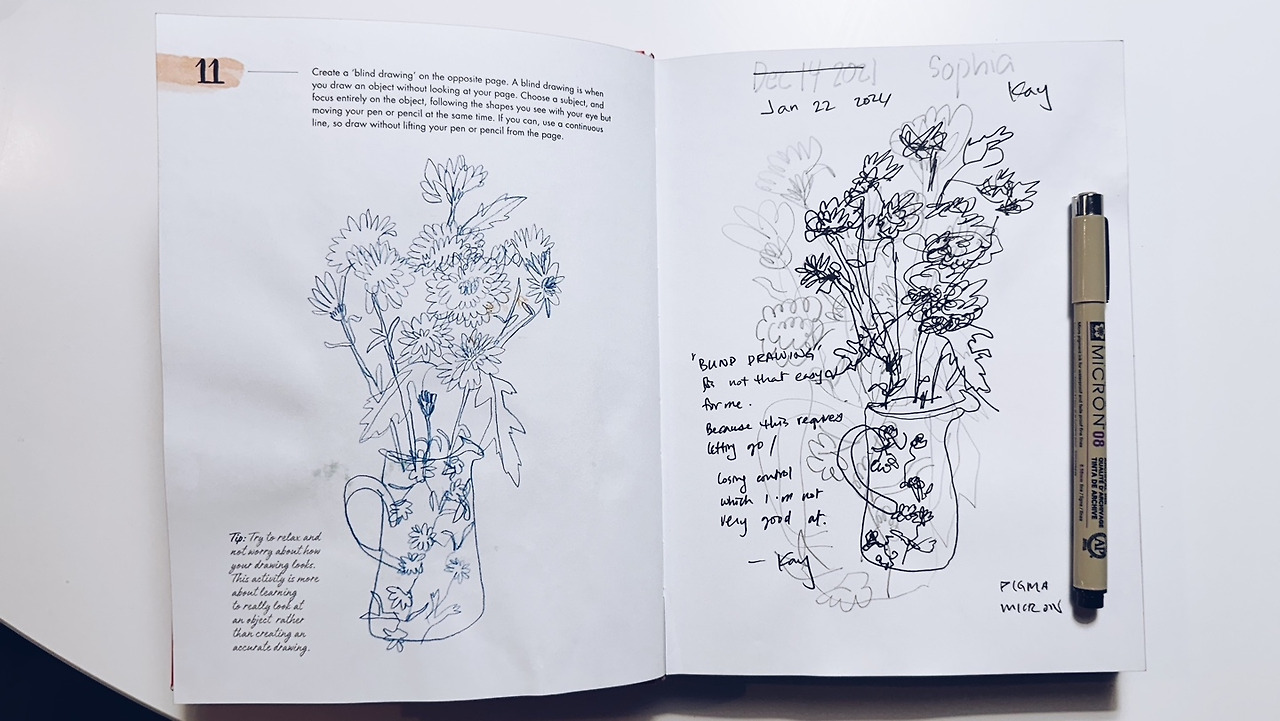 11
Create a 'blind drawing' on the opposite page. A blind drawing is when
you draw an object without looking at your page. Choose a subject, and
focus entirely on the object, following the shapes you see with your eye but
moving your pen or pencil at the same time. If you can, use a continuous
line, so draw without lifting your pen or pencil from the page.
Tip: Try to relax and
not worry about how
your drawing looks.
This activity is more
about learning
to really look at
an object rather
than creating an
accurate drawing.
Dec 14 2021
Sophia
Jan 22 2024
Kay
"BLIND DRAWING"
is not that easy
for me.
Because this requires
letting go /
losing control
which I'm not
very good at.
- Kay
PIGMA
MICRON
MICRON 08
QUALITÉ D'ARCHIVAGE
TINTA DE ARCHIVE
AP